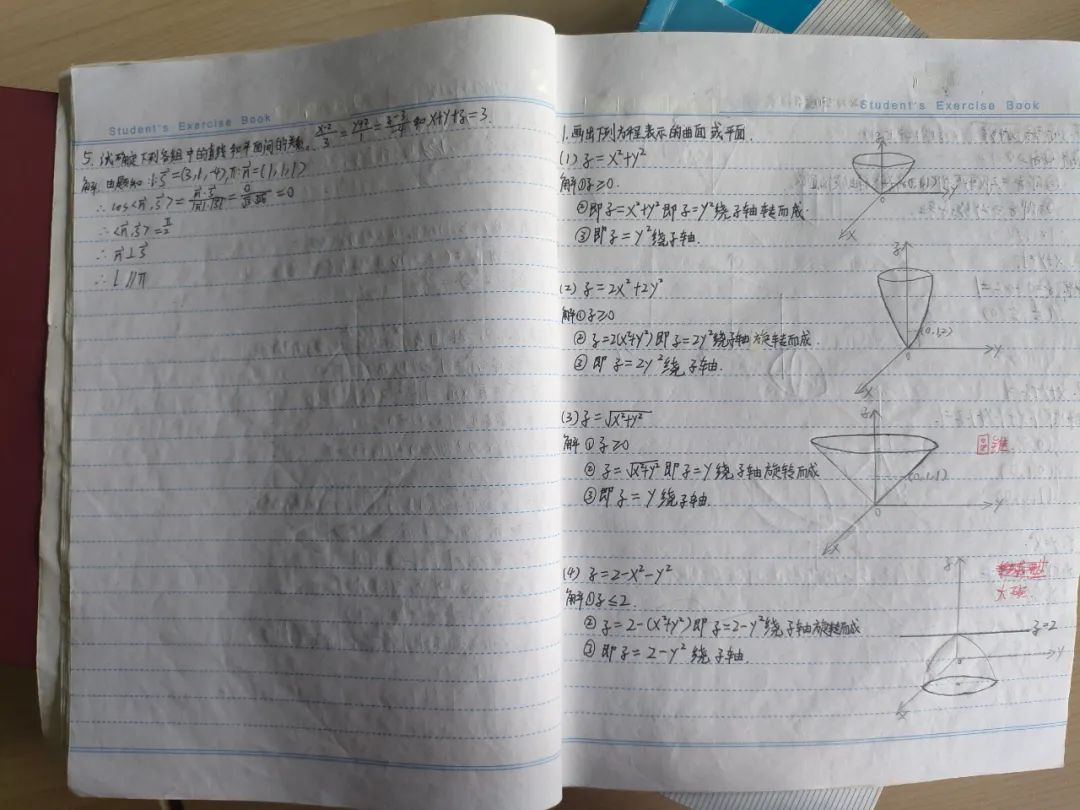 Student's Exercise Book
5. 试确定下列各组中的直线和平面间的关系. (x-2)/3 = (y+2)/1 = (z-3)/-4 和 x+y+z=3.
解: 由题知 l: s⃗=(3,1,-4), π: n⃗=(1,1,1)
∴ cos<n⃗,s⃗> = n⃗·s⃗/|n⃗|·|s⃗| = = 0
∴ <n⃗,s⃗> = π/2
∴ n⃗⊥s⃗
∴ L∥π
Student's Exercise Book
1. 画出下列方程表示的曲面或平面.
(1) z=x²+y²
解①z≥0.
②即z=x²+y²即z=y²绕z轴转而成.
③即z=y²绕z轴.
z
y
0
x
(2) z=2x²+2y²
解①z≥0
②z=2(x²+y²)即z=2y²绕z轴旋转而成.
③即z=2y²绕z轴.
z
(0,1,2)
0
y
x
(3) z=√x²+y²
解①z≥0
②z=√x²+y²即z=y绕z轴旋转而成
③即z=y绕z轴.
z
圆锥.
(0,1,1)
0
y
x
(4) z=2-x²-y²
解①z≤2.
②z=2-(x²+y²)即z=2-y²绕z轴旋转而成
③即z=2-y²绕z轴.
z
z=2
y
x